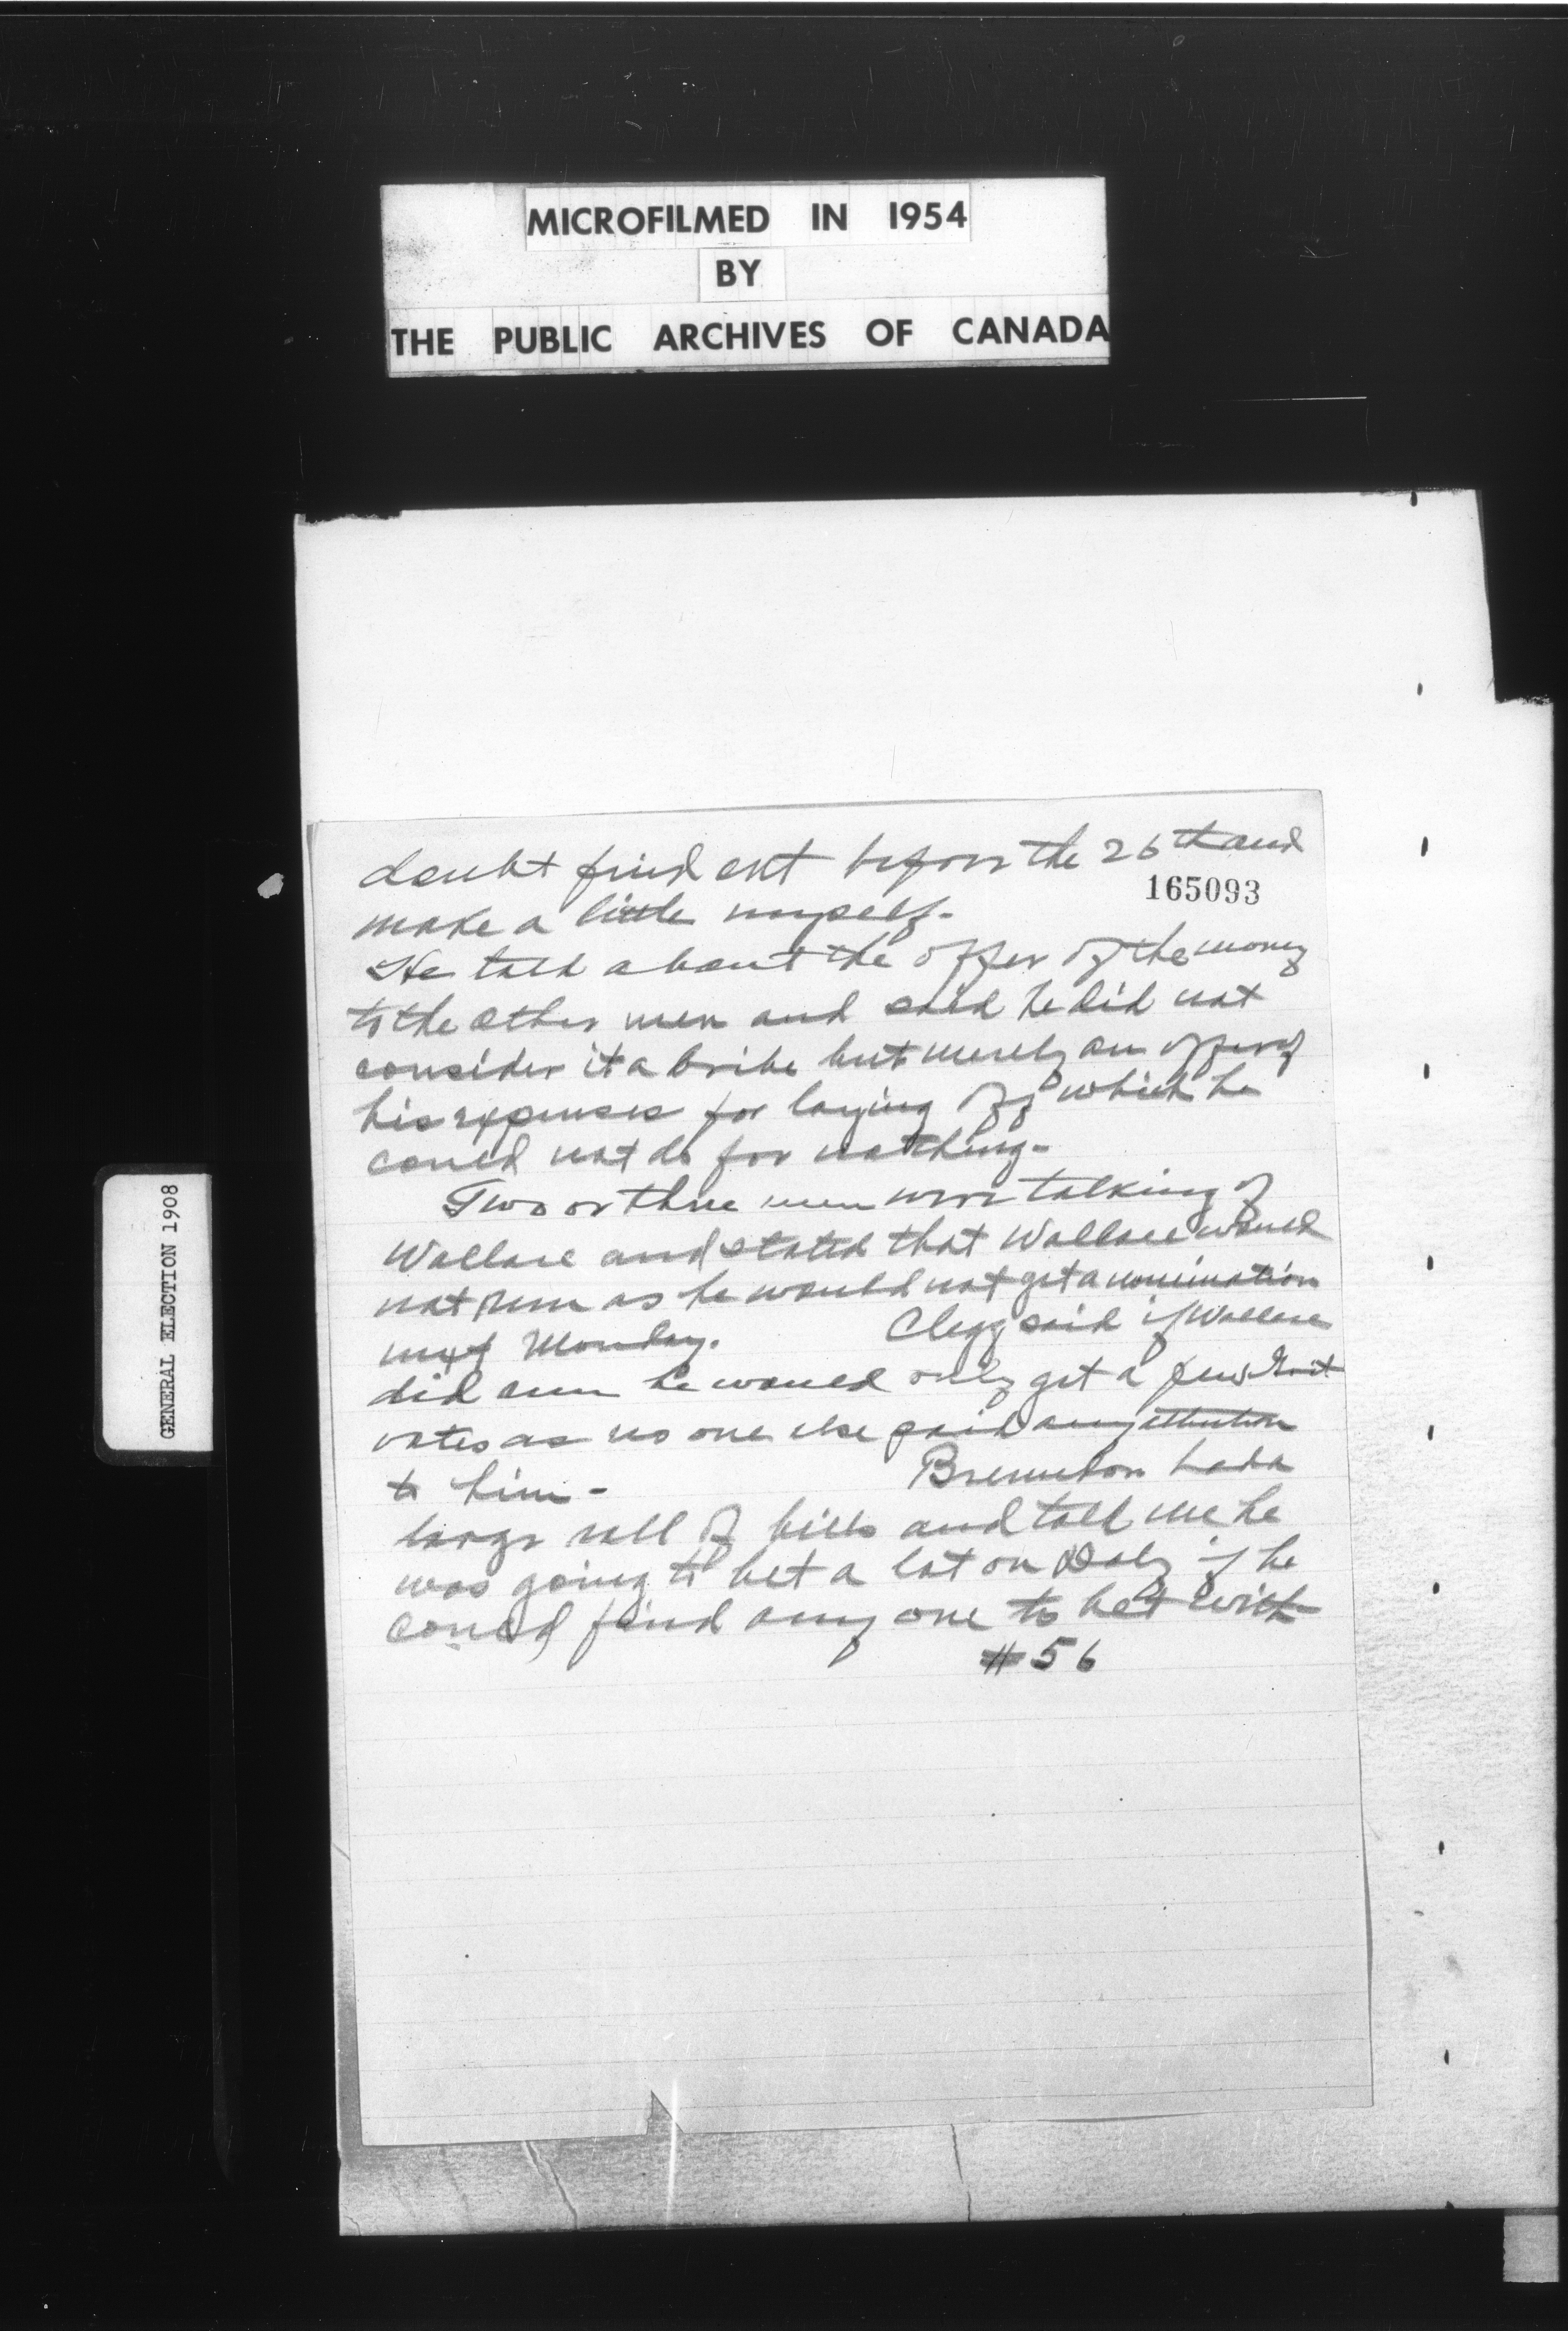 MICROFILMED IN 1954
BY
THE PUBLIC ARCHIVES OF CANADA
GENERAL ELECTION 1908
doubt find out before the 26th and
165093
make a little myself.
He told about the offer of the money
to the other men and said he did not
consider it a bribe but merely an offer of
his expenses for laying off which he
could not do for nothing.
Two or three men were talking of
Wallace and stated that Wallace would
not run as he would not get a nomination
next Monday. Clegg said if Wallace
did run he would only get a few Grit
votes as no one else paid any attention
to him - had a
large roll of bills and told me he
was going to bet a lot on Daly if he
could find any one to bet with
#56